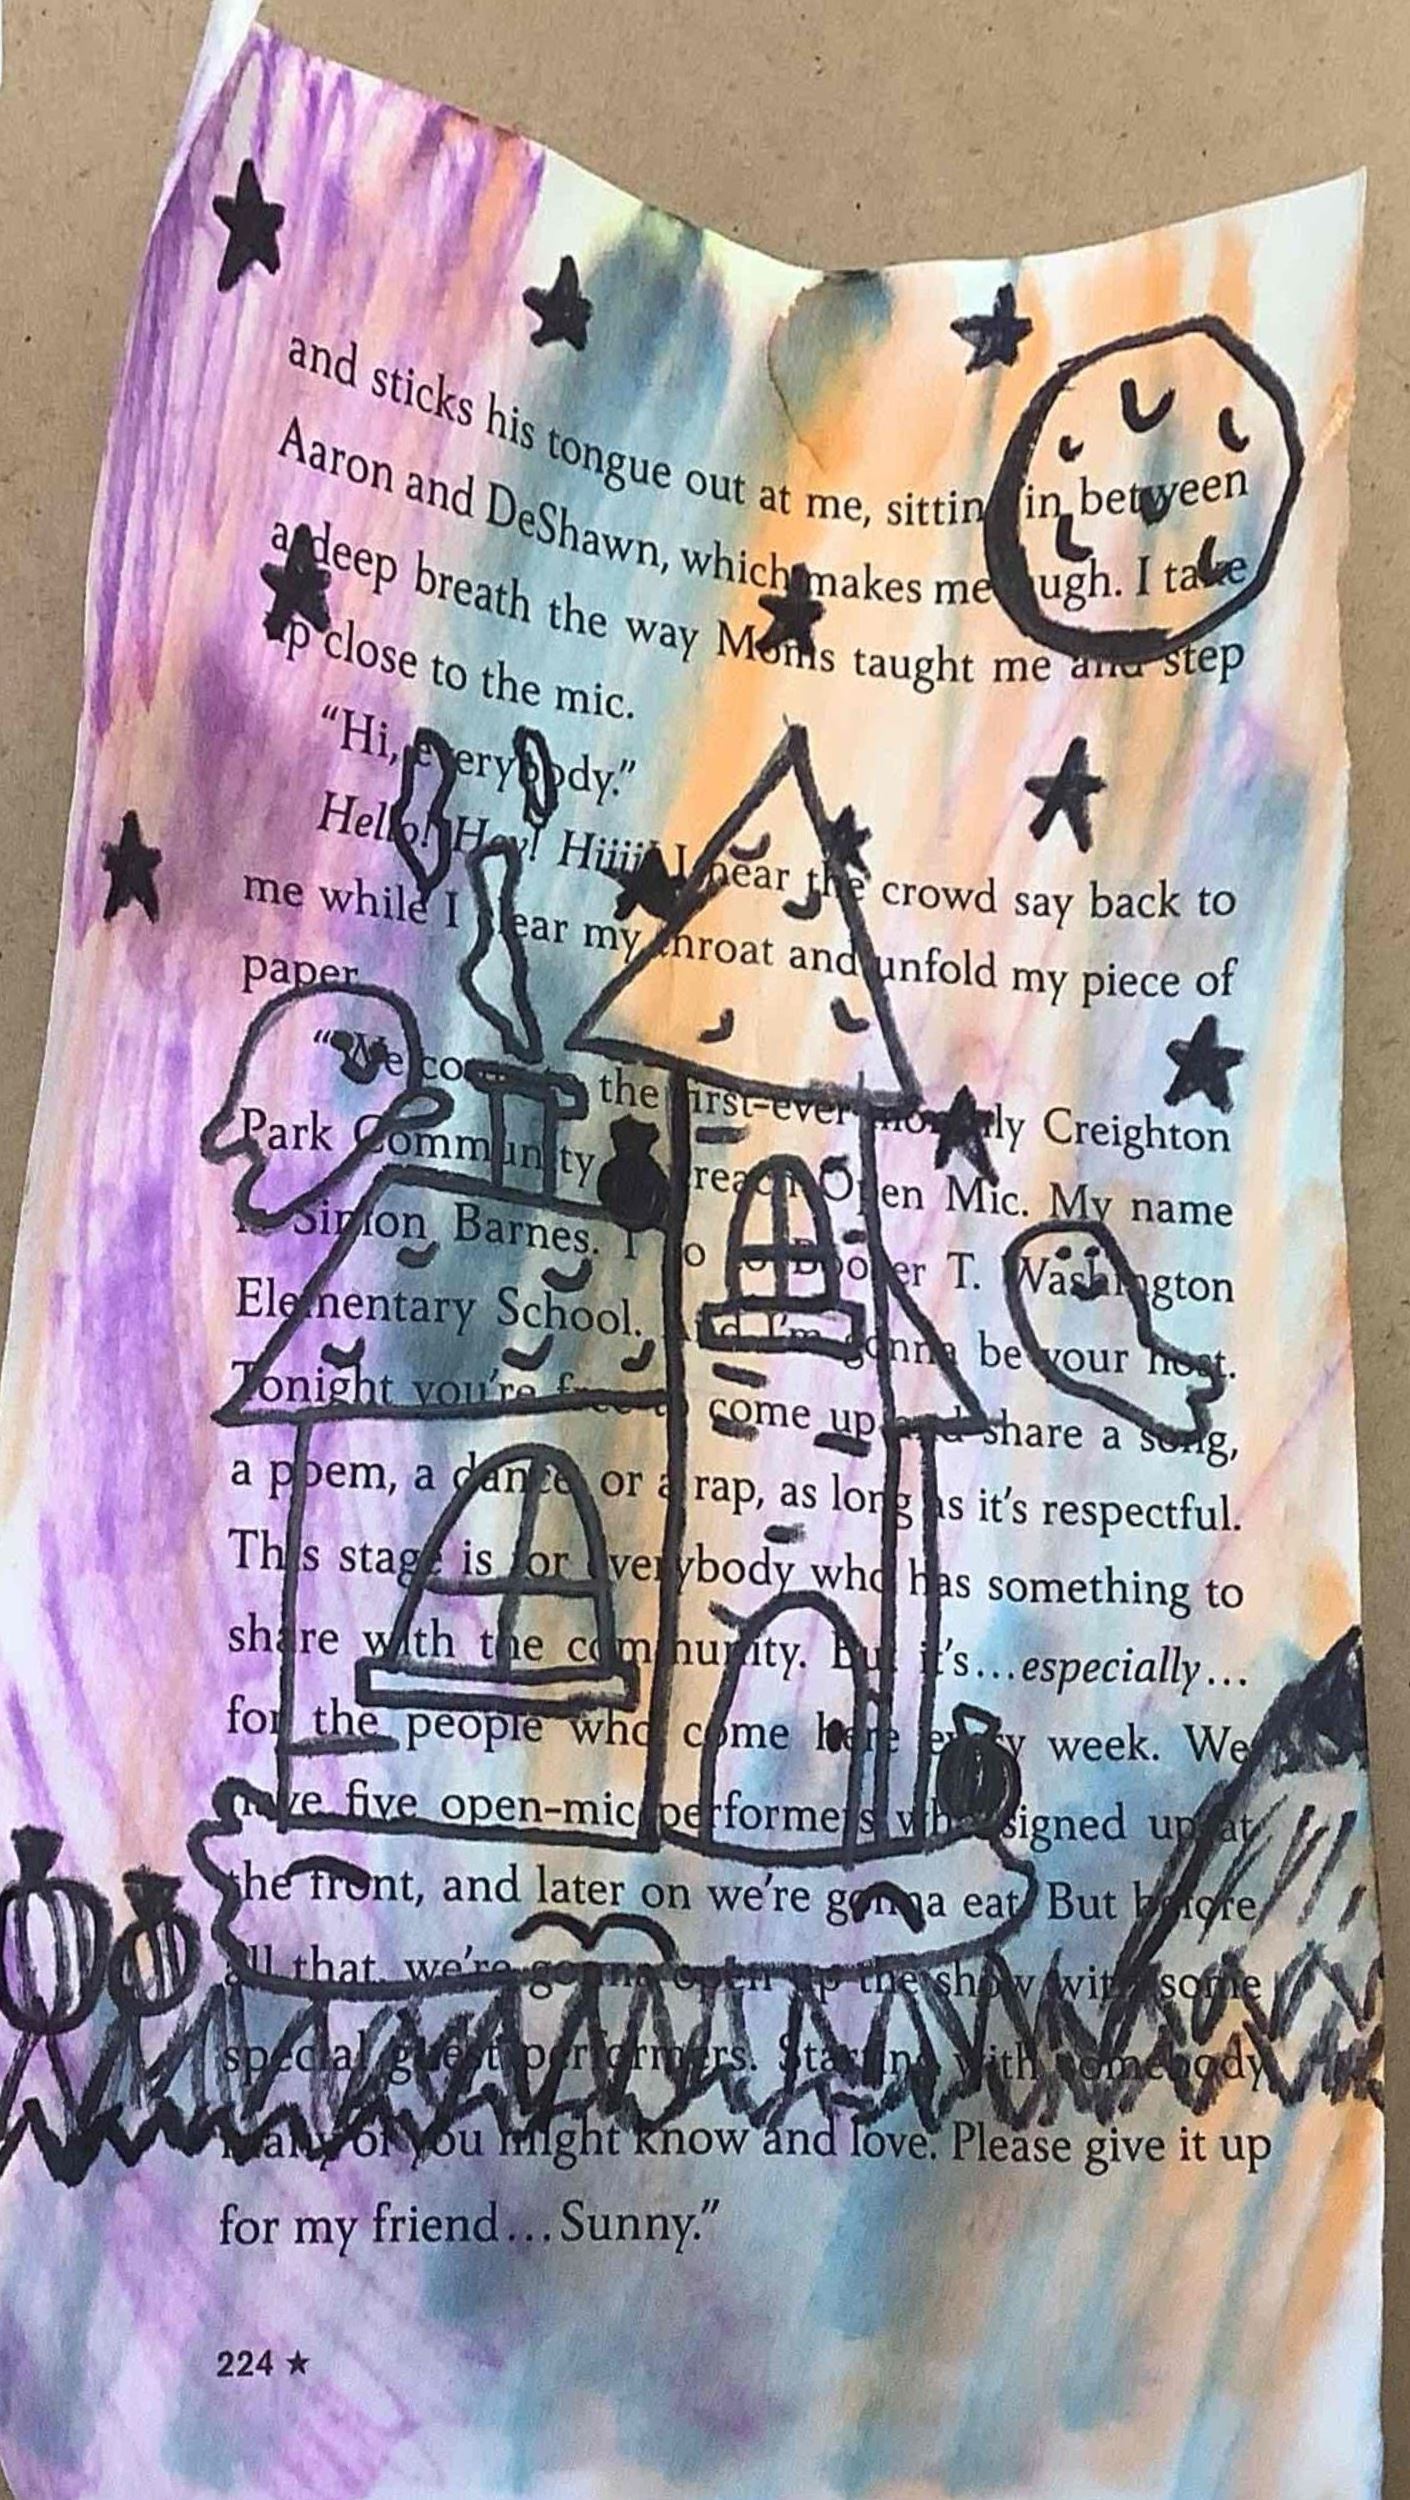 and sticks his tongue out at me, sitting in between
Aaron and DeShawn, which makes me laugh. I take
a deep breath the way Moms taught me and step
up close to the mic.
“Hi, everybody.”
Hello! Hey! Hiiii! I hear the crowd say back to
me while I clear my throat and unfold my piece of
paper.
“Welcome to the first-ever monthly Creighton
Park Community Open Mic. My name
is Simon Barnes. I go to Booker T. Washington
Elementary School. And I’m gonna be your host.
Tonight you’re free to come up and share a song,
a poem, a dance or a rap, as long as it’s respectful.
This stage is for everybody who has something to
share with the community. But it’s...especially...
for the people who come here every week. We
have five open-mic performers who signed up at
the front, and later on we’re gonna eat. But before
all that, we’re gonna open up the show with some
special guest performers. Starting with somebody
many of you might know and love. Please give it up
for my friend...Sunny.”
224 ★